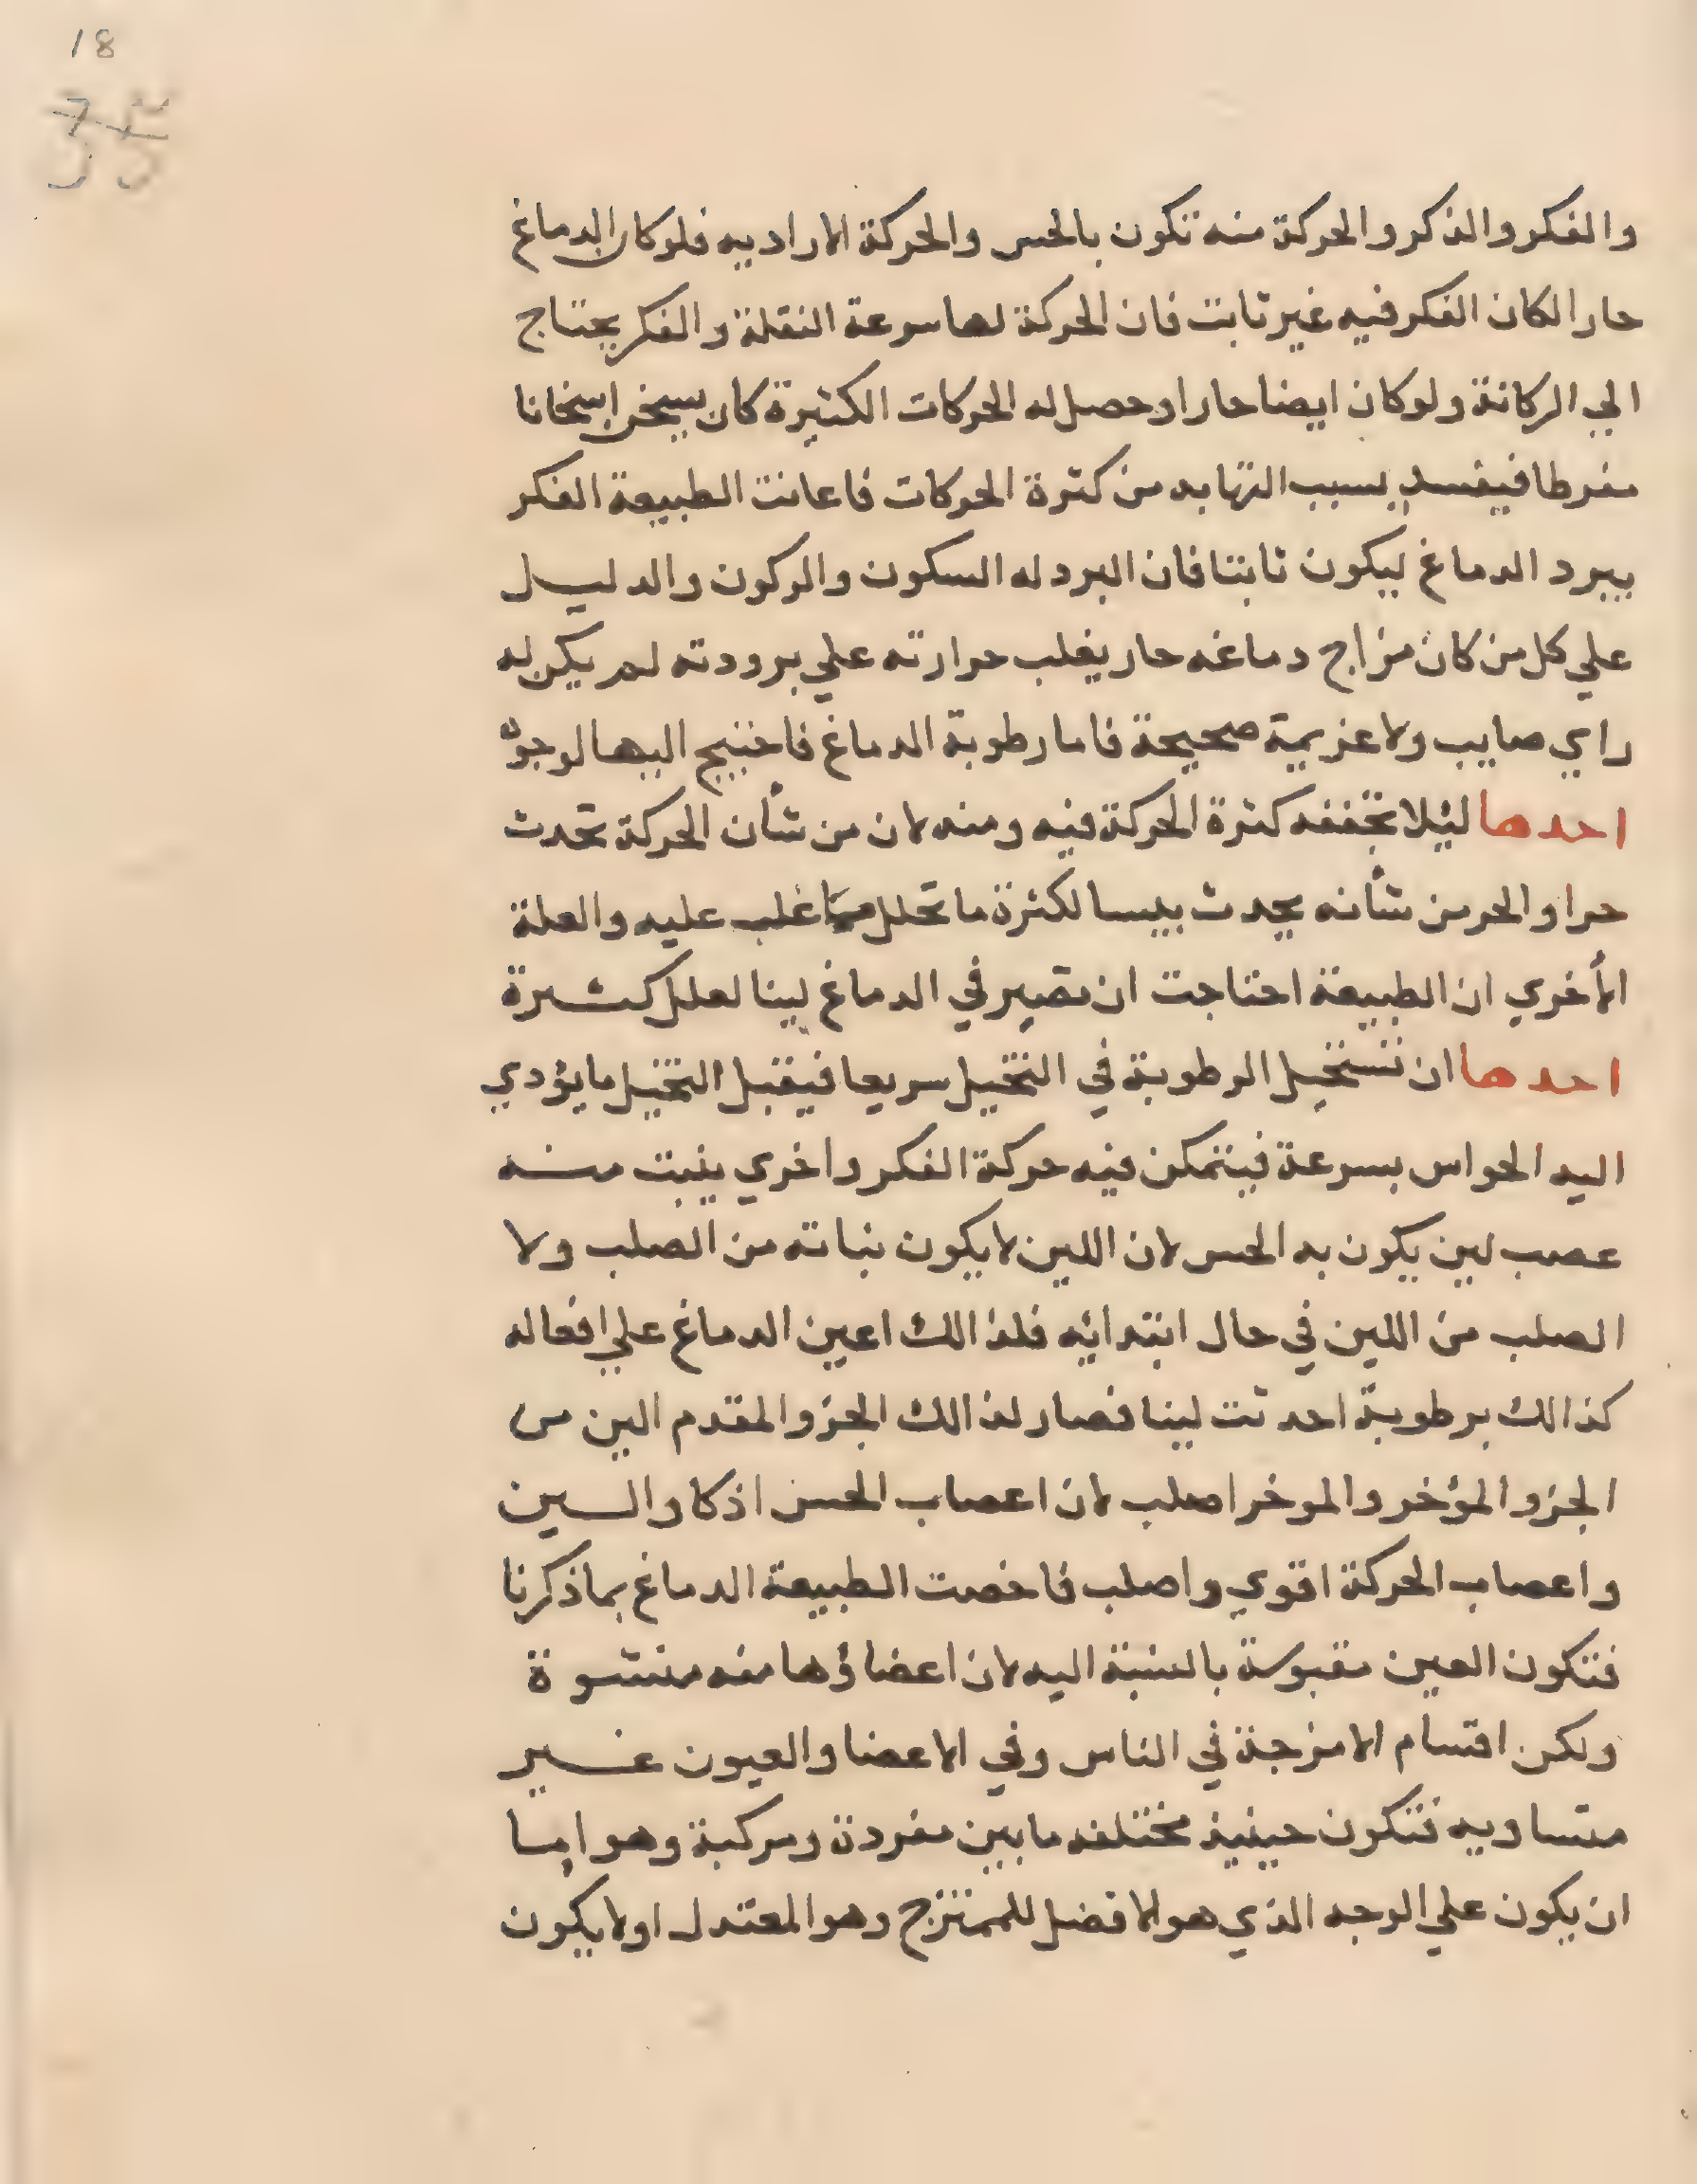 18
35
والفكر والذكر والحركة منه تكون بالحس والحركة الاراديه فلوكان الدماغ
حارا لكان الفكر فيه غير ثابت فان الحركة لها سرعة النقلة والفكر يحتاج
الي الركانة ولوكان ايضا حارا وحصل له الحركات الكثيرة كان يسخن اسخانا
مفرطا فيفسد بسبب التهابه من كثرة الحركات فاعانت الطبيعة الفكر
ببرد الدماغ ليكون ثابتا فان البرد له السكون والركون والدليل
علي كل من كان مزاج دماغه حار يغلب حرارته علي برودته لم يكن له
راي صايب ولا عزيمة صحيحة فاما رطوبة الدماغ فاحتيج اليها لوجوه
احدها ليلا تجففه كثرة الحركة فيه ومنه لان من شأن الحركة تحدث
حرا والحر من شأنه يحدث يبسا لكثرة ما تحلل مما غلب عليه والعلة
الأخري ان الطبيعة احتاجت ان تصير في الدماغ لينا لعلل كثيرة
احدها ان تستحيل الرطوبة في التخيل سريعا فيقبل التخيل ما يؤدي
اليه الحواس بسرعة فيتمكن فيه حركة الفكر واخري ينبت منه
عصب لين يكون به الحس لان اللين لا يكون نباته من الصلب ولا
الصلب من اللين في حال ابتدايه فلذالك اعين الدماغ علي افعاله
كذالك برطوبة احدثت لينا فصار لذالك الجزو المقدم الين من
الجزو المؤخر والموخر اصلب لان اعصاب الحس اذكا والين
واعصاب الحركة اقوي واصلب فاخصت الطبيعة الدماغ بما ذكرنا
فتكون العين مقبوسة بالنسبة اليه لان اعضاؤها منه منشوة
ولكن اقسام الامزجة في الناس وفي الاعضا والعيون غير
متساويه فتكون حينيذ مختلفه ما بين مفردة ومركبة وهو اما
ان يكون علي الوجه الذي هو الافضل للممتزج وهو المعتدل اولا يكون